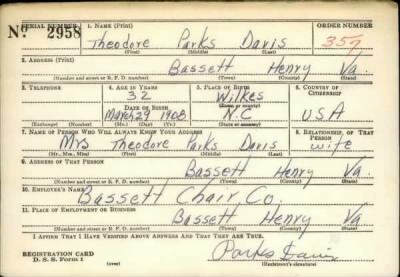 SERIAL NUMBER 1. NAME (Print) ORDER NUMBER
No 2958 Theodore Parks Davis 357
(First) (Middle) (Last)
2. ADDRESS (Print)
Bassett Henry Va.
(Number and street or R. F. D. number) (Town) (County) (State)
3. TELEPHONE 4. AGE IN YEARS 5. PLACE OF BIRTH 6. COUNTRY OF CITIZENSHIP
32 Wilkes
(Town or county)
DATE OF BIRTH
March 29 1908 N.C USA
(Exchange) (No.) (Mo.) (Day) (Yr.) (State or country)
7. NAME OF PERSON WHO WILL ALWAYS KNOW YOUR ADDRESS 8. RELATIONSHIP OF THAT PERSON
Mrs Theodore Parks Davis wife
(Mr., Mrs., Miss) (First) (Middle) (Last)
9. ADDRESS OF THAT PERSON
Bassett Henry Va.
(Number and street or R. F. D. number) (Town) (County) (State)
10. EMPLOYER'S NAME
Bassett Chair, Co.
11. PLACE OF EMPLOYMENT OR BUSINESS
Bassett Henry Va.
(Number and street or R. F. D. number) (Town) (County) (State)
I AFFIRM THAT I HAVE VERIFIED ABOVE ANSWERS AND THAT THEY ARE TRUE.
Parks Davis
REGISTRATION CARD
D. S. S. Form 1 (over) (Registrant's signature)